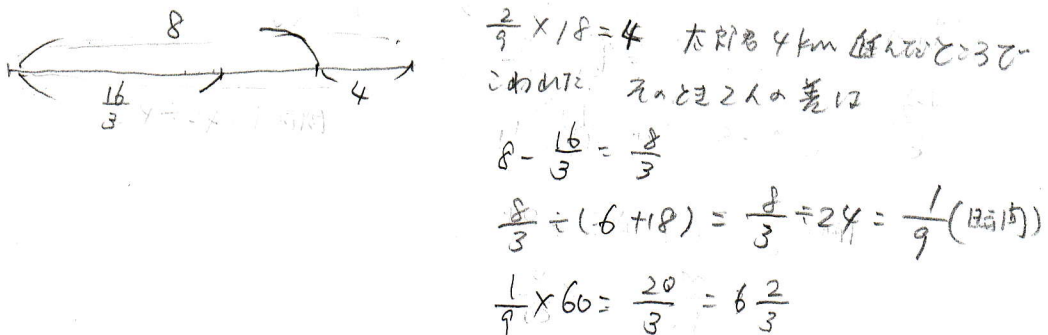 8
16/3
4
2/9 × 18 = 4 太郎君 4 km 進んだところで
こわれた そのとき2人の差は
8 - 16/3 = 8/3
8/3 ÷ (6+18) = 8/3 ÷ 24 = 1/9 (時間)
1/9 × 60 = 20/3 = 6 2/3